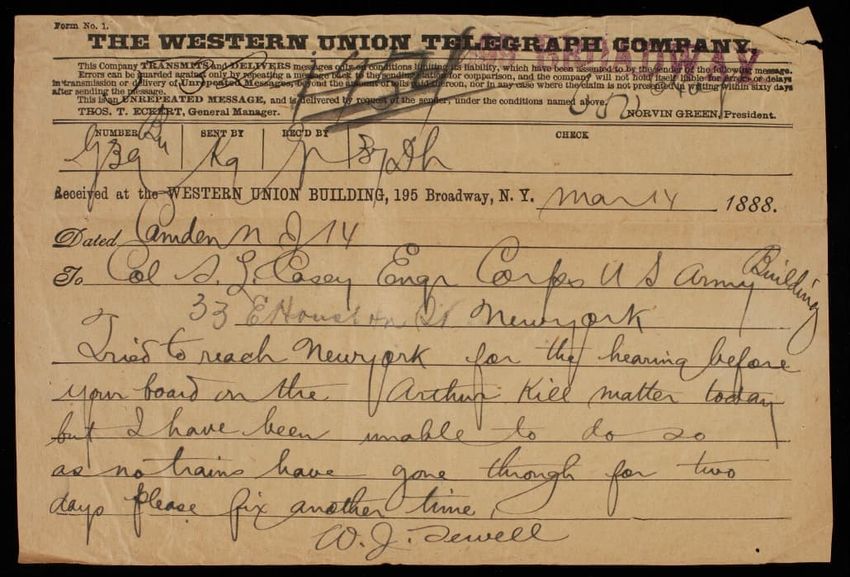 Form No. 1.
THE WESTERN UNION TELEGRAPH COMPANY.
This Company TRANSMITS and DELIVERS messages only on conditions limiting its liability, which have been assented to by the sender of the following message.
Errors can be guarded against only by repeating a message back to the sending station for comparison, and the company will not hold itself liable for errors or delays
in transmission or delivery of Unrepeated Messages, beyond the amount of tolls paid thereon, nor in any case where the claim is not presented in writing within sixty days
after sending the message.
This is an UNREPEATED MESSAGE, and is delivered by request of the sender, under the conditions named above.
THOS. T. ECKERT, General Manager. NORVIN GREEN, President.
NUMBER SENT BY REC'D BY CHECK
Received at the WESTERN UNION BUILDING, 195 Broadway, N. Y. Mar 14 1888.
Dated Camden N J 14
To Col S. L. Casey Engr Corps U S Army Building
33 E Houston St New york
Tried to reach New york for the hearing before
your board on the Arthur Kill matter today
but I have been unable to do so
as no trains have gone through for two
days Please fix another time
W. J. Sewell